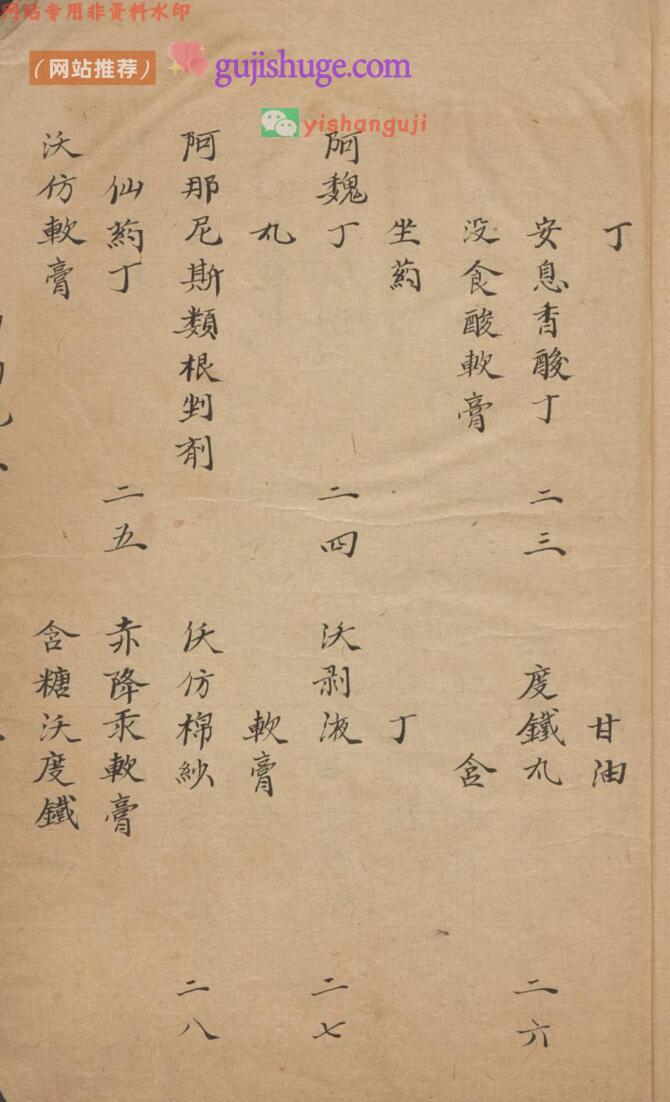 网站专用非资料水印
(网站推荐)
gujishuge.com
yishanguji
丁
安息香酸丁 二三
没食酸軟膏
坐葯
阿魏丁 二四
丸
阿那尼斯類根剉剤
仙葯丁 二五
沃仿軟膏
甘油
度鐵丸 二六
含
丁
沃剥液 二七
軟膏
沃仿棉紗 二八
赤降汞軟膏
含糖沃度鐵